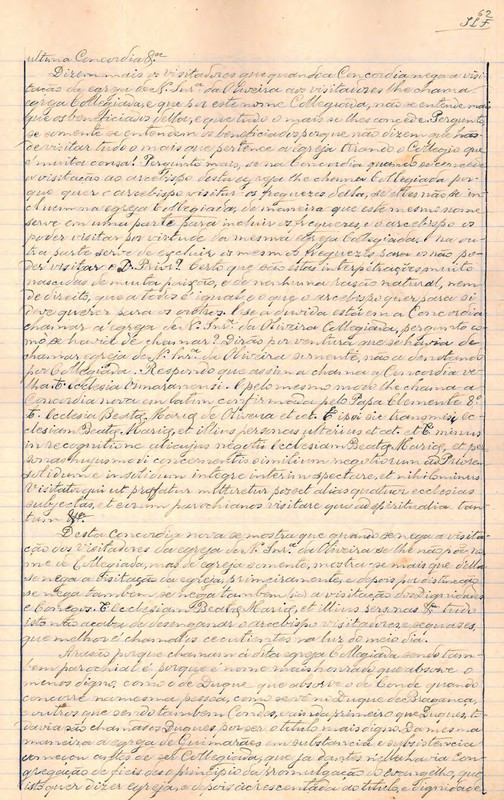 62
ultima Concordia &ra
Dizem mais os visitadores que quando a Concordia nega a visi-
tação da egreja de N. Snrª da Oliveira aos visitadores lhe chama
egreja Collegiada, e que por este nome Collegiada, não se entende mais
que os beneficiados della, e que tudo o mais se lhes concede. Pergunto,
se somente se entendem os beneficiados porque não dizem que hão
de visitar tudo o mais que pertence á egreja tirando o Collegio que
é muita cousa? Pergunto mais, se na Concordia quando se concede
a visitação ao arcebispo desta se, e se lhe chama Collegiada por
que quer o arcebispo visitar os freguezes della, se elles não se in-
cluem na egreja Collegiada, de maneira que este mesmo nome
serve em uma parte para incluir os freguezes, e o arcebispo os
poder visitar por virtude da mesma egreja Collegiada e na ou-
tra parte serve de excluir os mesmos freguezes para os não po-
der visitar o D. Prior? Certo que são estas interpretações muito
nascidas de muita paixão, e de nenhuma rasão natural, nem
de direito, que a todos é igual, e o que o arcebispo quer para si
deve querer para os outros. E se a duvida está em a Concordia
chamar á egreja de N. Snrª da Oliveira Collegiada, pergunto co-
mo se havia de chamar? Dirão por ventura que se havia de
chamar egreja de N. Snrª da Oliveira somente, não a denotando
por Collegiada. Respondo que assim a chama a Concordia ve-
lha: E. ecclesia Vimaranensi. E pelo mesmo modo lhe chama a
Concordia nova em latim confirmada pelo Papa Clemente 8º
E. ecclesia Beatæ Mariæ de Olivara et cet. E. ipsi sic transmissi ec-
clesiam Beatæ Mariæ, et illius personas ulterius et cet. et E. minus
in recognitione alicujus negotii ecclesiam Beatæ Mariæ, et per-
sonas hujusmodi concernentis similium negotiorum ad Priorem
solidum e insolidum integre interim spectare, et nihilominus
Visitator qui ut præfatur mitteretur posset alias quatuor ecclesias
subjectas, et eorum parochianos visitare quo ad spiritualia tan-
tum &ra
Desta Concordia nova se mostra que quando se nega a visita-
ção dos Visitadores da egreja de N. Snrª da Oliveira se lhe não põe no-
me de Collegiada, mas de egreja somente, mostra-se mais que della
se nega a visitação da egreja, primeiramente, e depois por distincção
se nega tambem a visitação das Dignidades
e Conegos. E. Ecclesiam Beatæ Mariæ, et illius personas &ra tudo
isto não acaba de desenganar o arcebispo visitadores, e sequases,
que melhor é chamados cecutientes na luz do meio dia.
A rasão porque chamam á dita egreja Collegiada sendo tam-
bem parochial é porque é nome mais honrado que absorve o
menos digno, como o de Duque que absorve o de Conde quando
concorre na mesma pessoa, como se vê no Duque de Bragança,
e outros que sendo tambem Condes, e ainda primeiro que Duques, to-
davia são chamados Duques por ser o titulo mais digno. Da mesma
maneira a egreja de Guimarães em substancia e subsistencia
começou antes de ser Collegiada, que já dantes n'ella havia Con-
gregação de fieis desde o principio da promulgação do Evangelho, que
isto quer dizer egreja, e depois accrescentada do titulo, e dignidade